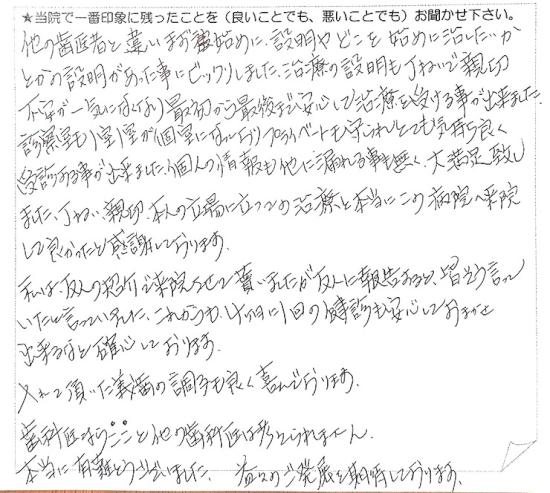 ★当院で一番印象に残ったことを（良いことでも、悪いことでも）お聞かせ下さい。
他の歯医者と違いまず始めに、説明やどこを始めに治したいか
とかの説明があった事にビックリしました。治療の説明も丁ねいで親切
不安が一気になくなり最初から最後まで安心して治療を受ける事が出来ました。
診察室も1室1室が個室になっておりプライベートも守られとても気持ち良く
受診する事が出来ました。個人の情報も他に漏れる事も無く、大満足致し
ました、丁ねい、親切、本人の立場に立っての治療と本当にこの病院へ来院
して良かったと感謝しております。
私は、友人の紹介で来院させて貰いましたが友人に報告すると、皆そう言って
いたと言っていました、これからも、4ヶ月に1回の健診も安心しておまかせ
出来るなと確心しております。
入れて頂いた義歯の調子も良く喜んでおります。
歯科医はもうここと他の歯科医は考えられません。
本当に有難とうございました、益々のご発展を期待しております。